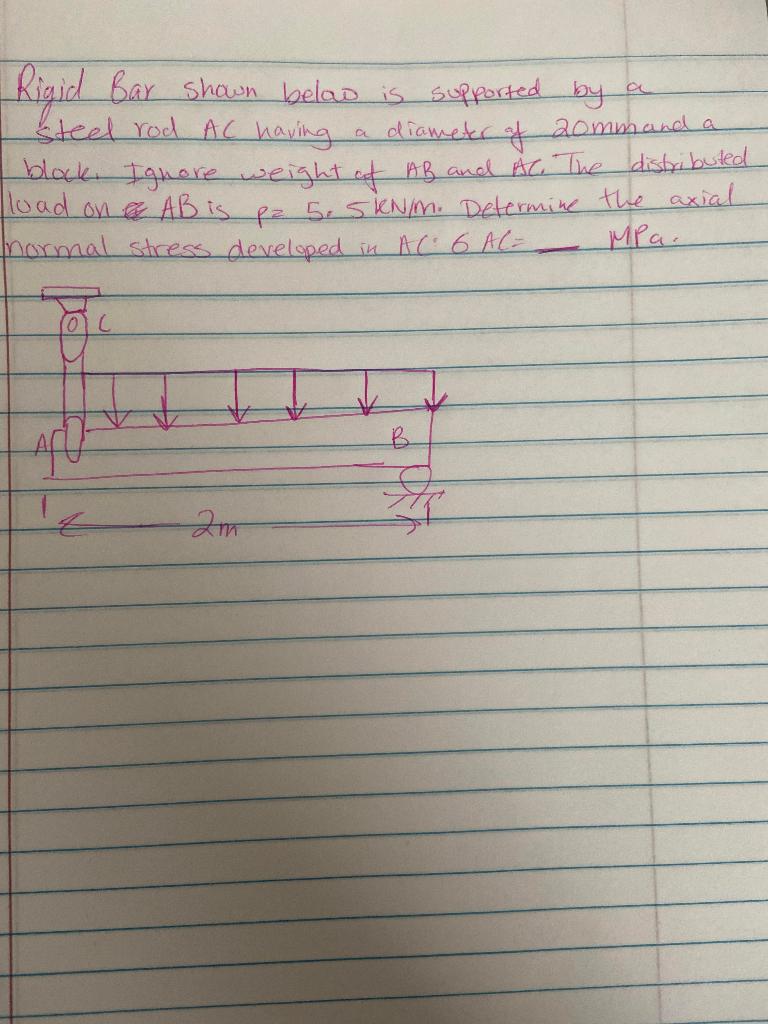 Rigid Bar shown below is supported by a
steel rod AC having a diameter of 20mm and a
block. Ignore weight of AB and AC. The distributed
load on AB is p= 5.5 KN/m. Determine the axial
normal stress developed in AC: σ AC= __ MPa.
C
A
B
2m